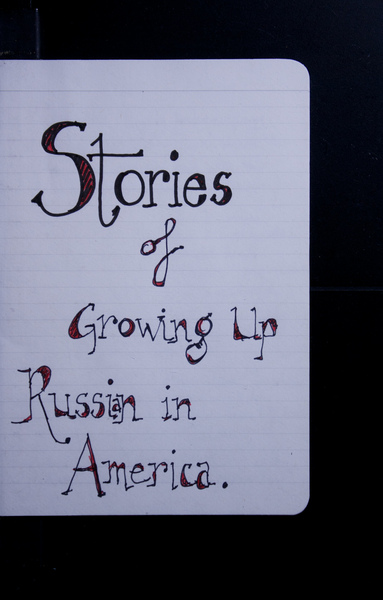 Stories
of
Growing Up
Russian in
America.